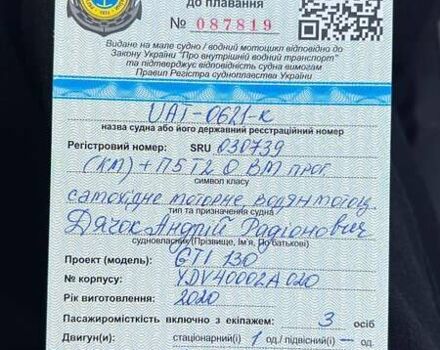 до плавання
№ 087819
Видане на мале судно / водний мотоцикл відповідно до
Закону України "Про внутрішній водний транспорт"
та підтверджує відповідність судна вимогам
Правил Регістра судноплавства України
UAT-0621-K
назва судна або його державний реєстраційний номер
Регістровий номер: SRU 030739
(КМ)+П5 Т2 О ВМ прог
символ класу
самохідне моторне, водян мотоц.
тип та призначення судна
Дячок Андрій Радіонович
судновласник (Прізвище, Ім'я, По батькові)
Проект (модель): GTI 130
№ корпусу: YDV40002A020
Рік виготовлення: 2020
Пасажиромісткість включно з екіпажем: 3 осіб
Двигун(и): стаціонарний(і) 1 од./ підвісний(і) — од.